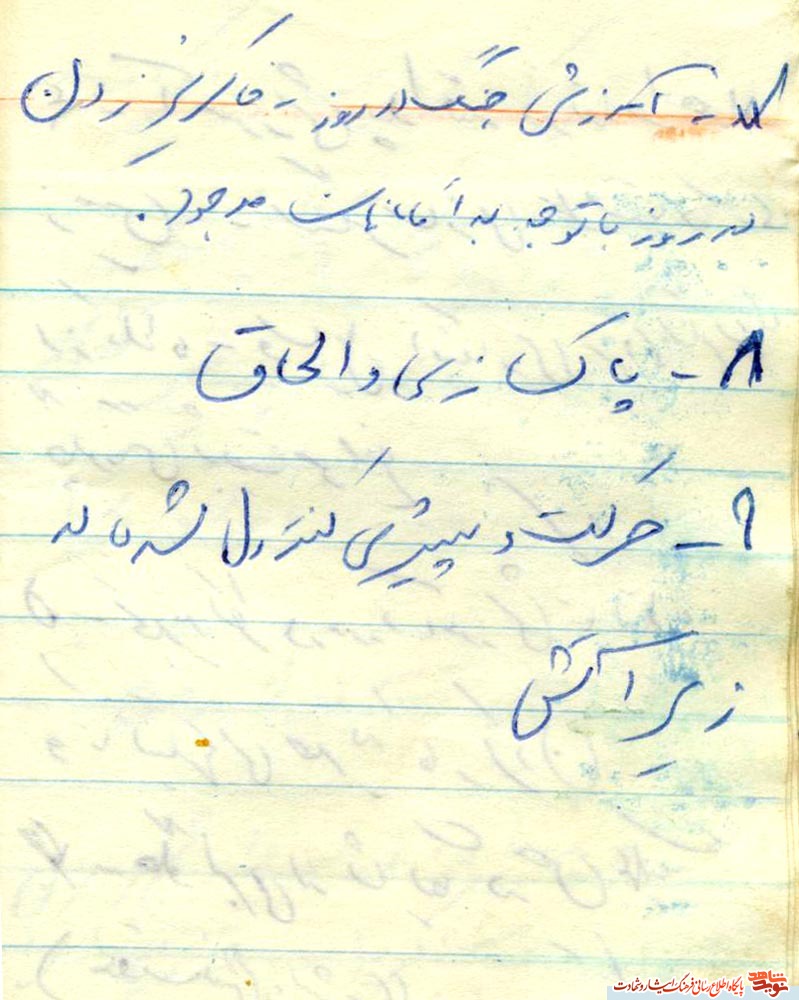 آموزش جنگ در روز - خاکریز زدن
در روز با توجه به امکانات موجود.
۸- پاک سازی و الحاق
۹- حرکت و پیشروی کنترل شده در
زیر آتش
نوید شاهد
پایگاه اطلاع رسانی فرهنگ ایثار و شهادت